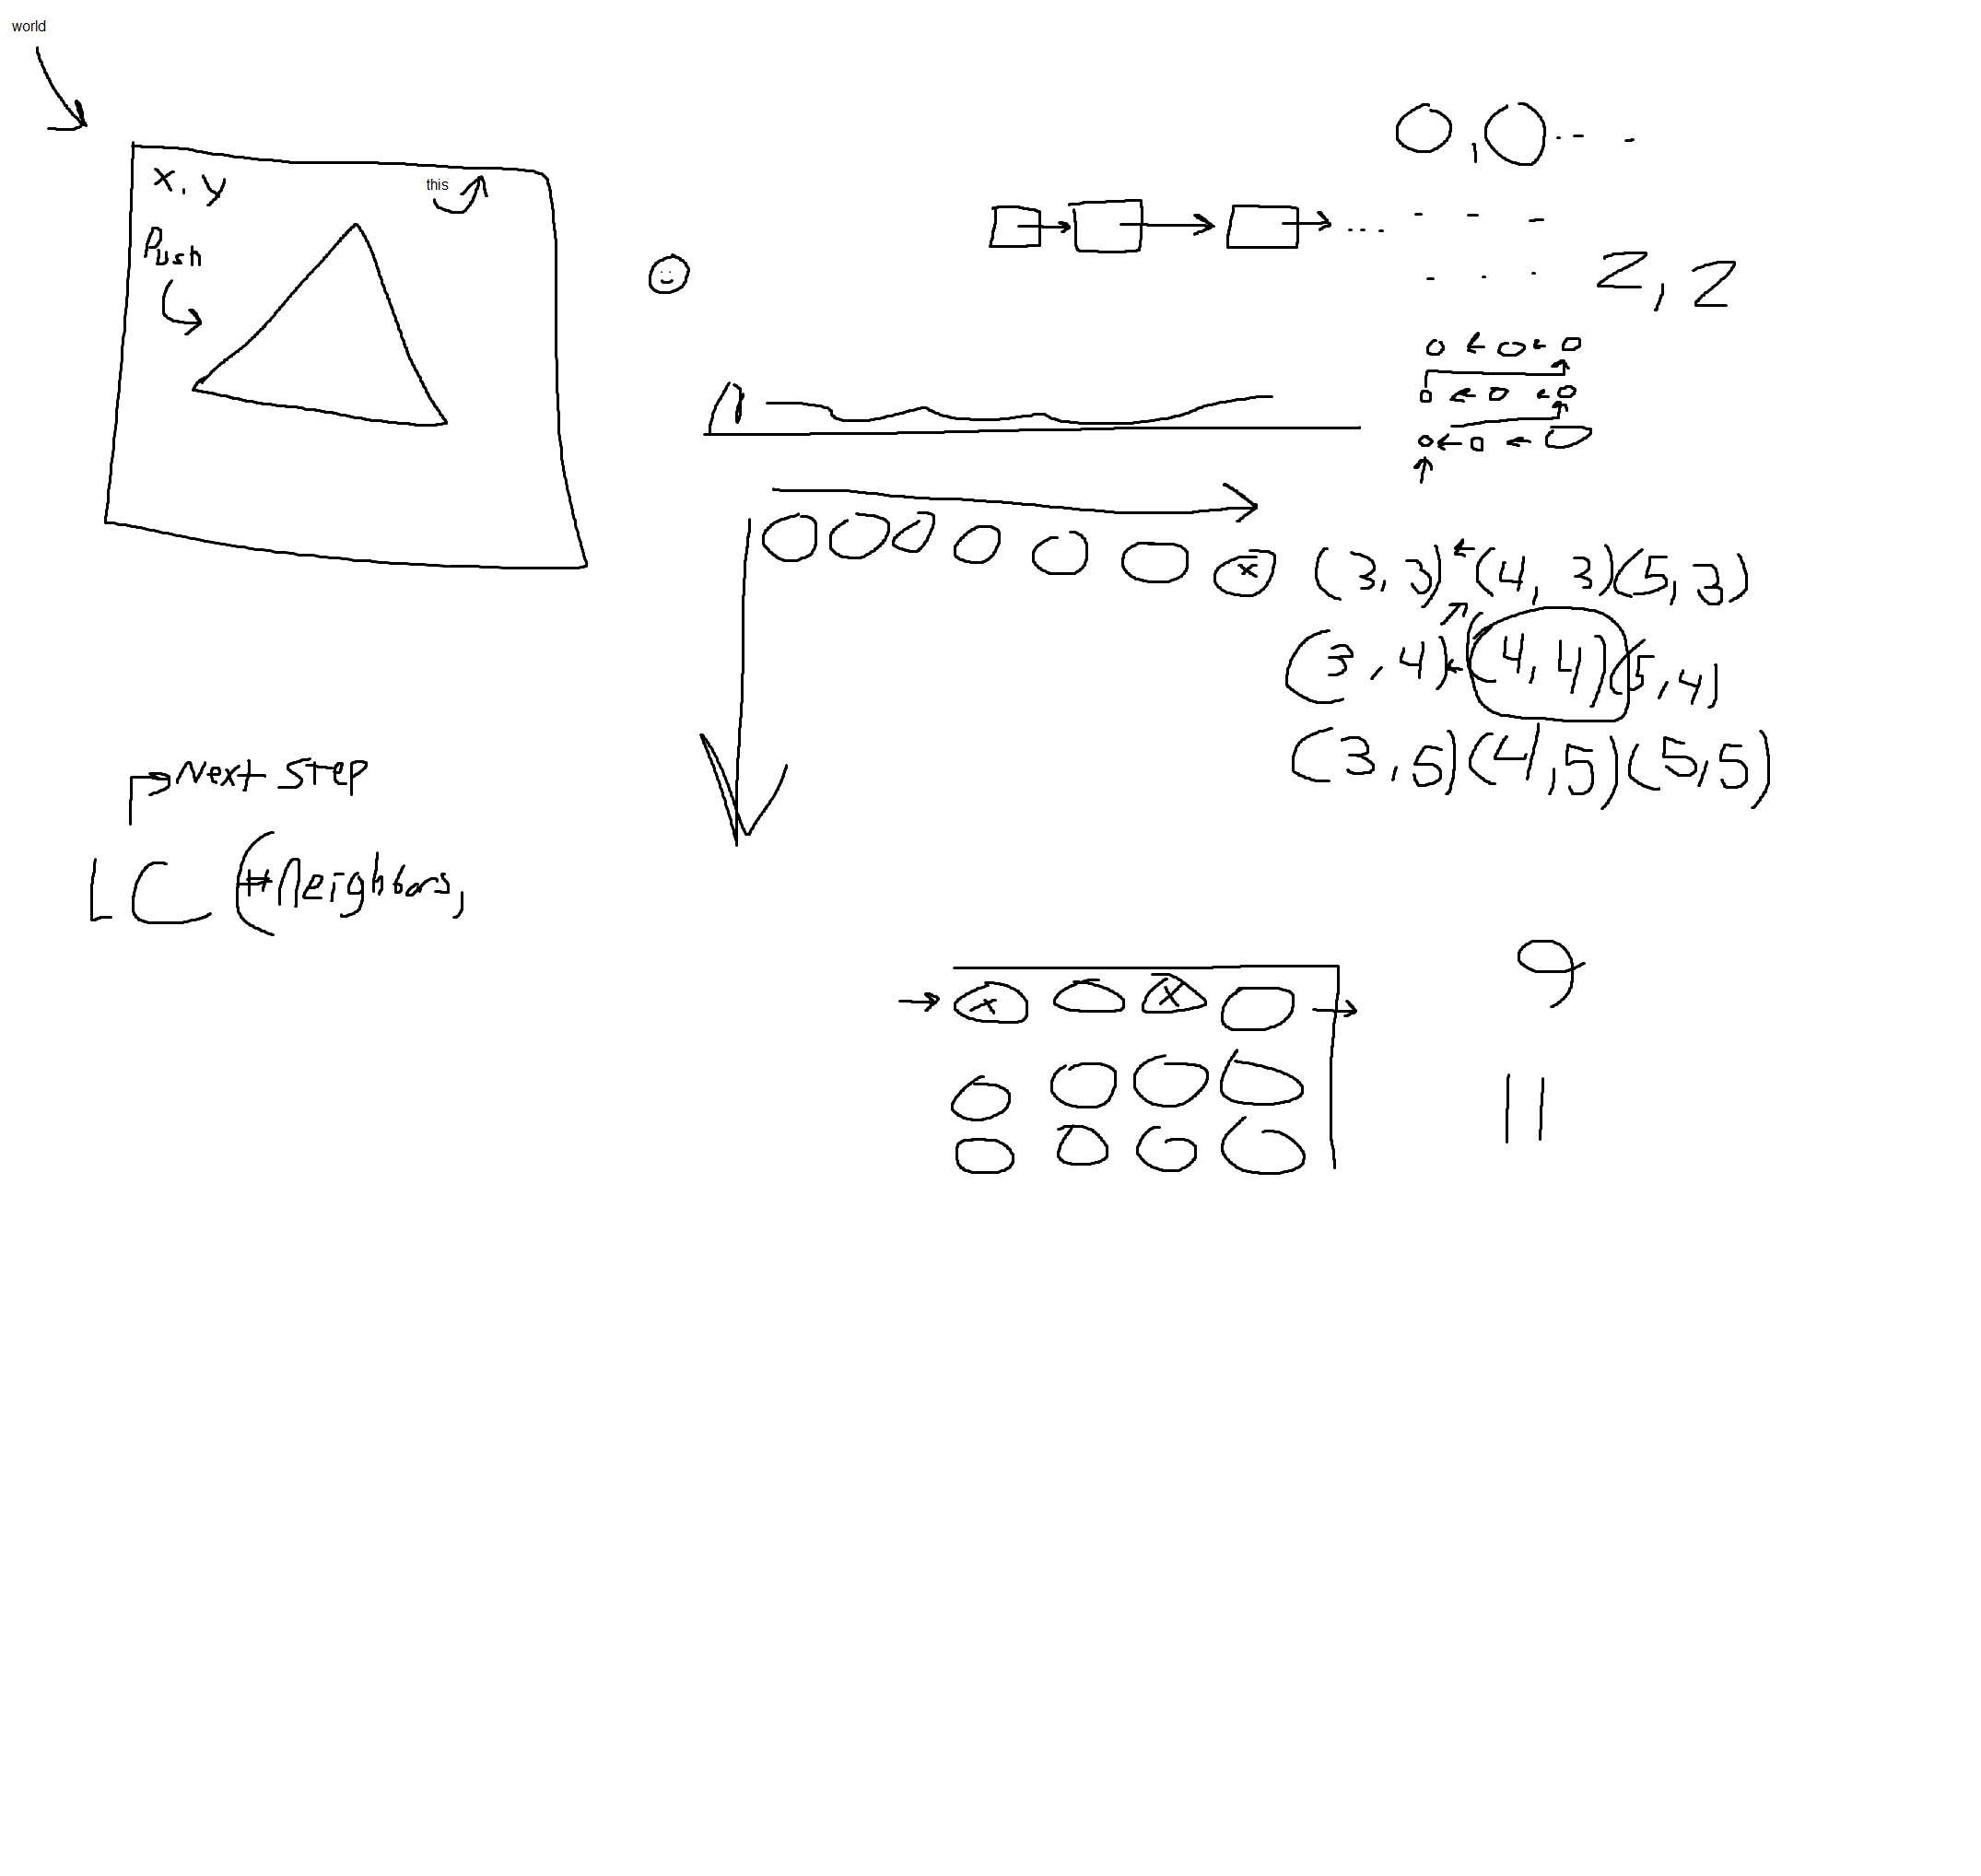 world
x, y
this
Push
0,0
2,2
(3,3) (4,3)(5,3)
(3,4) (4,4)(5,4)
(3,5)(4,5)(5,5)
x
Next Step
LC (#Neighbors,
x x
9
11